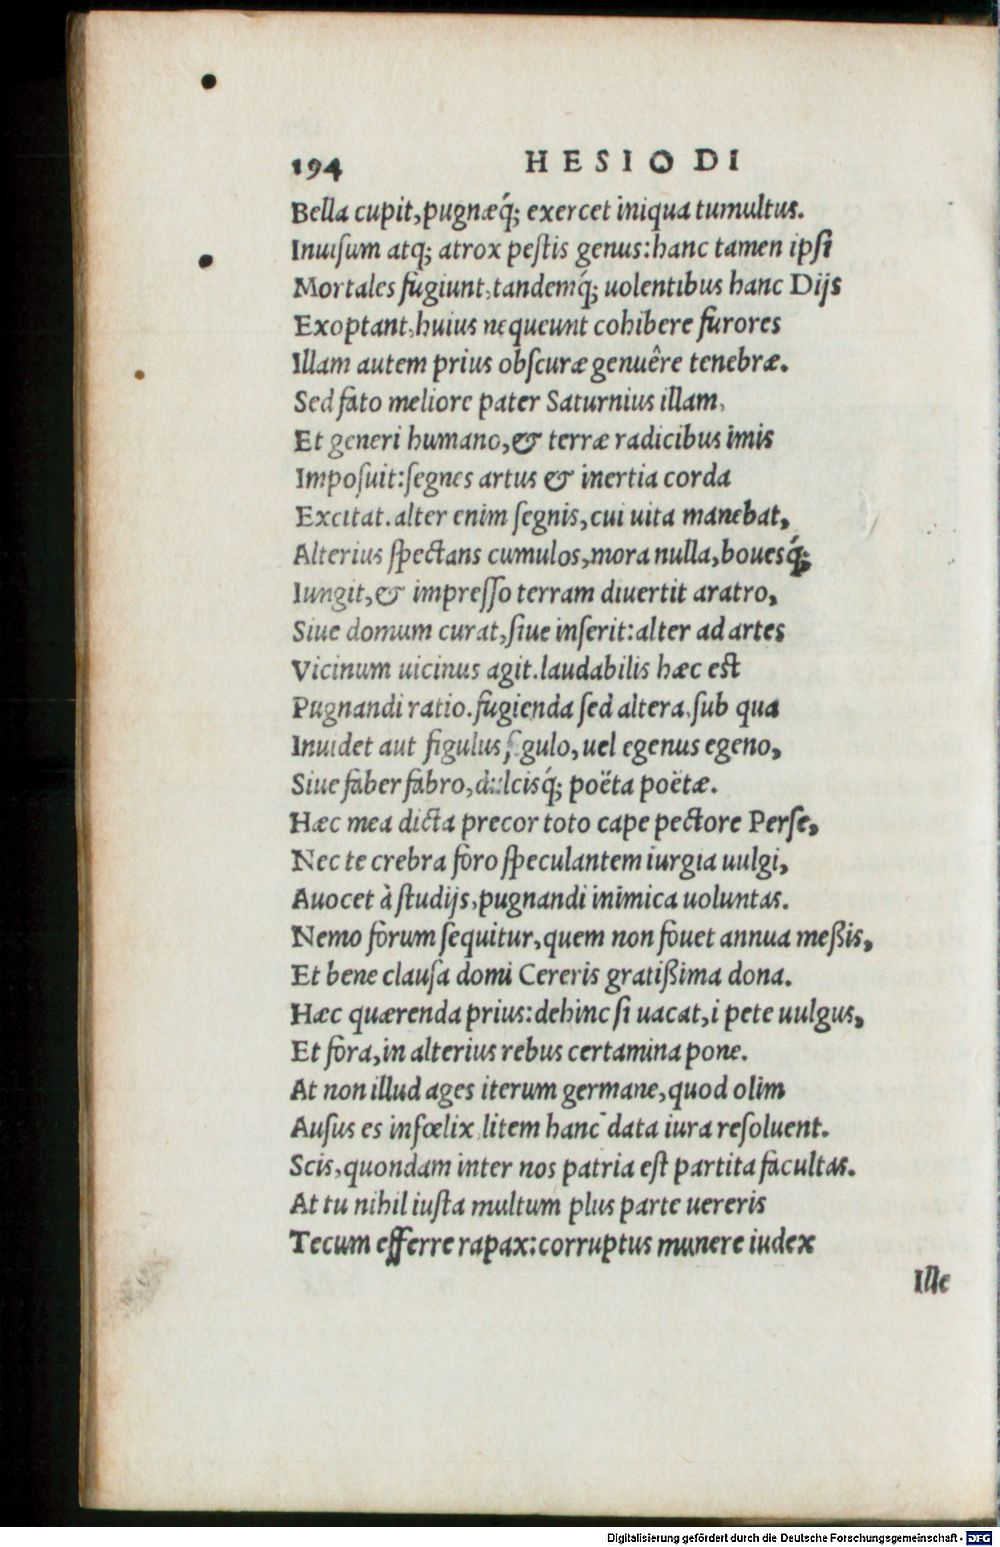 194 HESIODI
Bella cupit, pugnæq́; exercet iniqua tumultus.
Inuisum atq; atrox pestis genus: hanc tamen ipsi
Mortales fugiunt, tandemq́; uolentibus hanc Dijs
Exoptant, huius nequeunt cohibere furores
Illam autem prius obscuræ genuêre tenebræ.
Sed fato meliore pater Saturnius illam,
Et generi humano, & terræ radicibus imis
Imposuit: segnes artus & inertia corda
Excitat. alter enim segnis, cui uita manebat,
Alterius spectans cumulos, mora nulla, bouesq́;
Iungit, & impresso terram diuertit aratro,
Siue domum curat, siue inserit: alter ad artes
Vicinum uicinus agit. laudabilis hæc est
Pugnandi ratio. fugienda sed altera, sub qua
Inuidet aut figulus figulo, uel egenus egeno,
Siue faber fabro, dulcisq́; poëta poëtæ.
Hæc mea dicta precor toto cape pectore Perse,
Nec te crebra foro speculantem iurgia uulgi,
Auocet à studijs, pugnandi inimica uoluntas.
Nemo forum sequitur, quem non fouet annua meßis,
Et bene clausa domi Cereris gratißima dona.
Hæc quærenda prius: dehinc si uacat, i pete uulgus,
Et fora, in alterius rebus certamina pone.
At non illud ages iterum germane, quod olim
Ausus es infœlix, litem hanc data iura resoluent.
Scis, quondam inter nos patria est partita facultas.
At tu nihil iusta multum plus parte uereris
Tecum efferre rapax: corruptus munere iudex
Ille
Digitalisierung gefördert durch die Deutsche Forschungsgemeinschaft - DFG